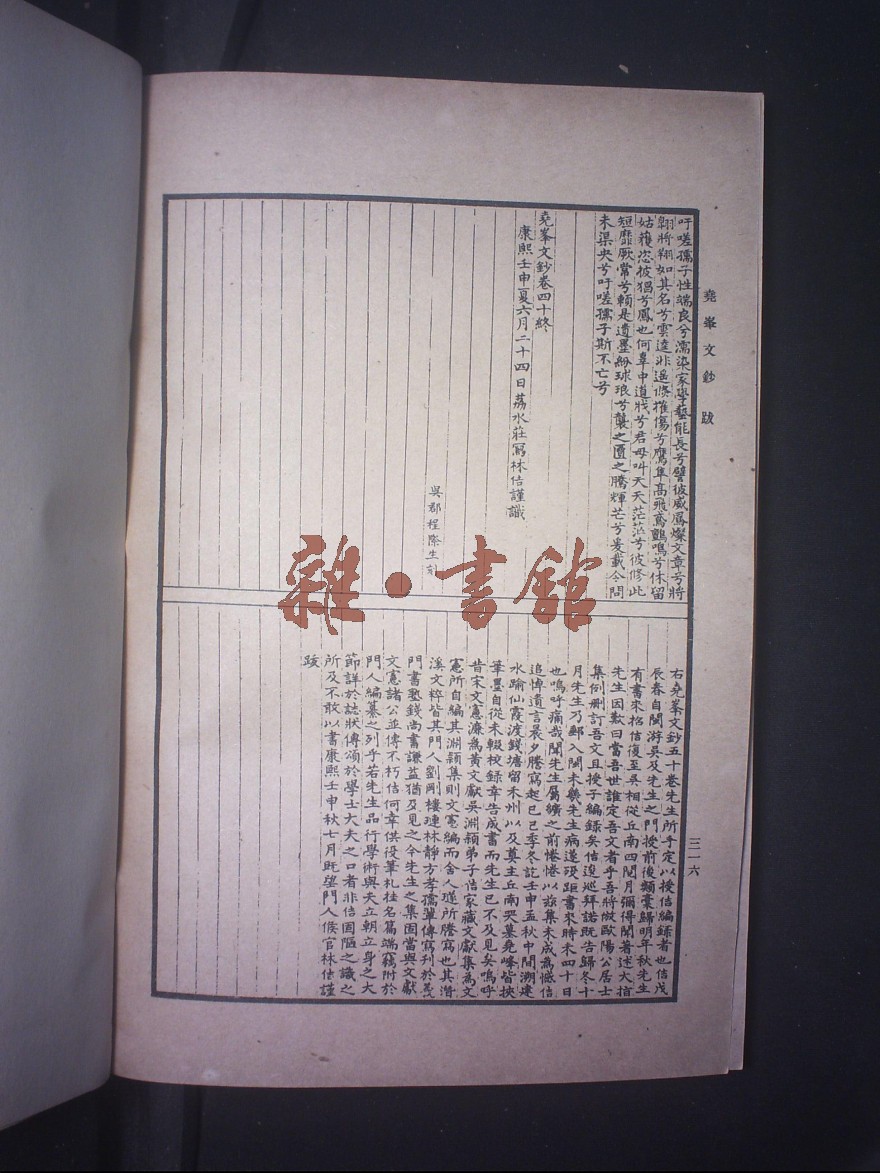 堯峯文鈔 跋
三一六
吁嗟孺子性端良兮濡染家學藝能長兮譬彼威鳳燦文章兮將
翱將翔如其名兮雲逵非遥倏摧傷兮鷹隼高飛鸢鸱鳴兮休留
姑穫恣彼猖兮鳳也何辜中道戕兮君毋叫天天茫茫兮彼修此
短靡厥常兮賴是遺墨紛球琅兮襲之匱之騰輝芒兮爰載令問
未渠央兮吁嗟孺子斯不亡兮
堯峯文鈔卷四十終
康熙壬申夏六月二十四日荔水莊寫林佶謹識
吳郡程際生
右堯峯文鈔五十卷先生所手定以授佶編錄者也佶戊
辰春自閩游吳及先生之門授前後類稾歸明年秋先生
有書來招佶復至吳相從丘南四閱月彌得聞著述大指
先生因歎曰當吾世誰定吾文者乎吾將倣歐陽公居士
集例刪訂吾文且授子編錄矣佶逡巡拜諾既告歸冬十
月先生乃郵入閩未幾先生病遂沒距書來時未四十日
也嗚呼痛哉聞先生屬纊之前惓惓以茲集未成為憾佶
追悼遺言晨夕謄寫起己巳季冬訖壬申孟秋中間溯建
水踰仙霞渡錢塘留禾州以及奠主丘南哭墓堯峰皆挾
筆墨自從未輟校錄幸告成書而先生已不及見矣嗚呼
昔宋文憲濂為黃文獻吳淵穎弟子佶家藏文獻集為文
憲所自編其淵穎集則文憲編而舍人璲所謄寫也其潛
溪文粹皆其門人劉剛樓璉林靜方孝孺輩傳寫刋於義
門書塾錢尚書謙益猶及見之今先生之集固當與文獻
文憲諸公並傳不朽佶何幸供役筆札挂名篇端竊附於
門人編纂之列乎若先生品行學術與夫立朝立身之大
節詳於誌狀傳頌於學士大夫之口者非佶固陋之識之
所及不敢以書康熙壬申秋七月既望門人候官林佶謹
跋
雜·書館